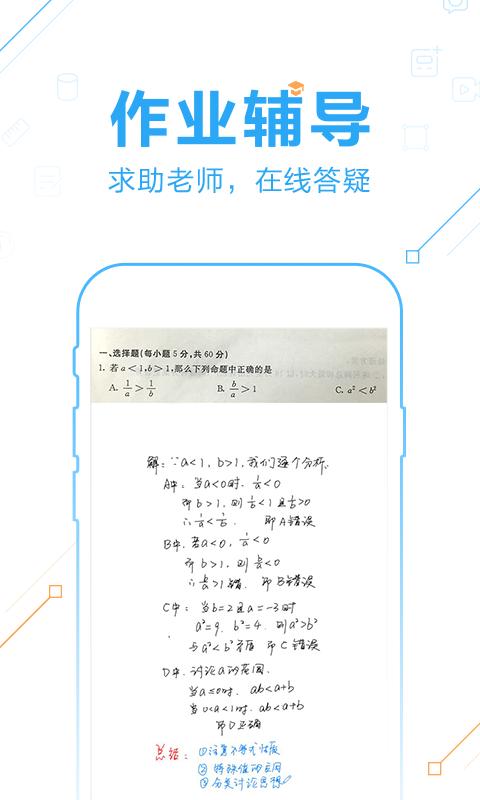 作业辅导
求助老师，在线答疑
一、选择题(每小题5分,共60分)
1. 若a<1,b>1,那么下列命题中正确的是
A. 1/a>1/b B. b/a>1 C. a²<b²
解：∵a<1, b>1, 我们逐个分析.
A中：当a<0时. 1/a<0
而b>1, 则1/b<1且1/b>0
∴1/a<1/b. 即A错误
B中. 若a<0, 1/a<0
而b>1, 则b/a<0
∴b/a>1错. 即B错误
C中：当b=2且a=-3时
a²=9, b²=4. 则a²>b²
与a²<b²矛盾 即C错误
D中. 讨论a的范围.
当a≤0时. ab<a+b
当0<a<1时. ab<a+b
即D正确
总结：①注意不等式性质
②特殊值的应用
③分类讨论思想